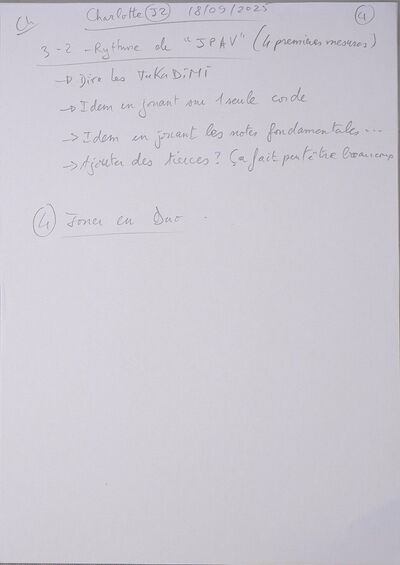 Ch Charlotte (J2) 18/09/2025 4
3-2 - Rythme de "JPAV" (4 premières mesures)
→ Dire les TaKaDiMi
→ Idem en jouant sur 1 seule corde
→ Idem en jouant les notes fondamentales...
→ Ajouter des tierces ? Ça fait peut être beaucoup
4 Jouer en Duo.